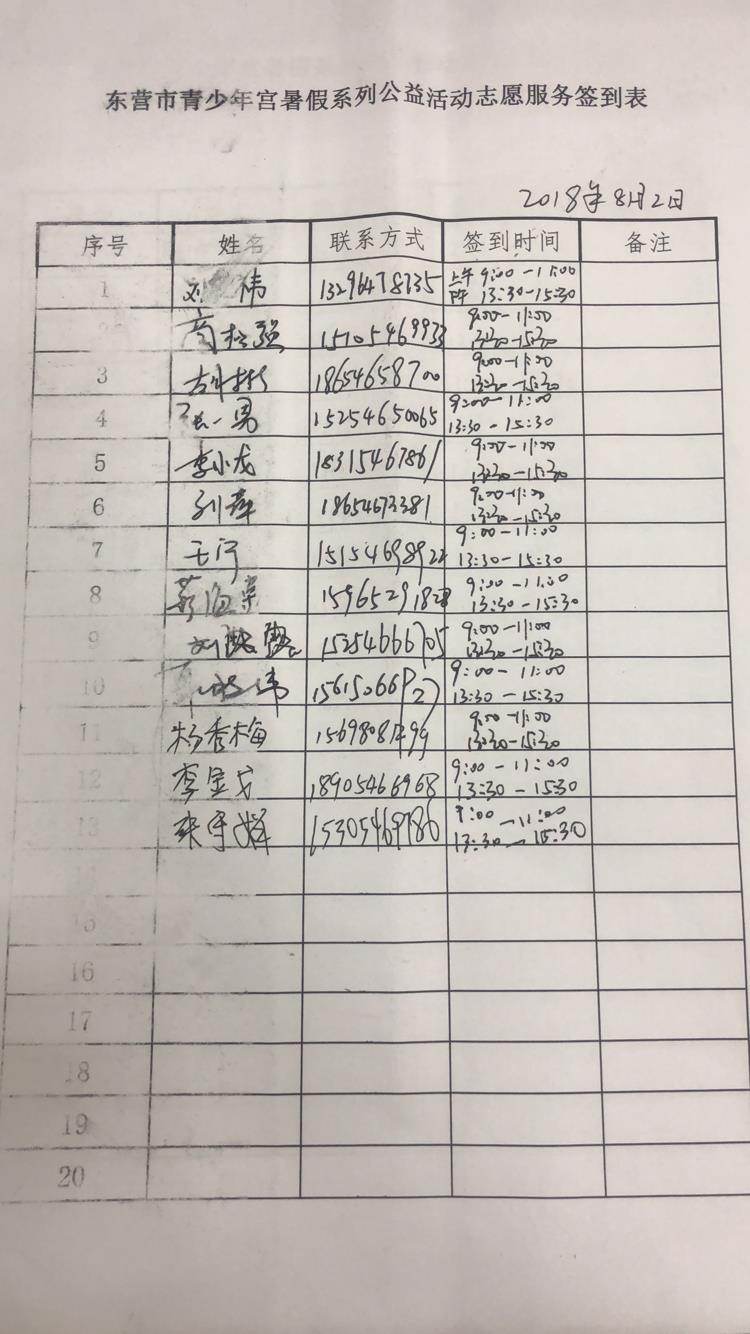 东营市青少年宫暑假系列公益活动志愿服务签到表
2018年8月2日
序号 姓名 联系方式 签到时间 备注
1 刘 伟 13296478735 上午 9:00-11:00
13:30-15:30
商松强 15105469933 9:00-11:00
13:30-15:30
3 18654658700 9:00-11:00
13:30-15:30
4 张一男 15254650065 9:00-11:00
13:30-15:30
5 李小龙 18315467861 9:00-11:00
13:30-15:30
6 18654673381 9:00-11:00
13:30-15:30
7 王河 15154698922 9:00-11:00
13:30-15:30
8 1596529182 9:00-11:00
13:30-15:30
9 刘 15254666705 9:00-11:00
13:30-15:30
10 伟 9:00-11:00
13:30-15:30
11 杨秀梅 9:00-11:00
13:30-15:30
12 李宝 18905466968 9:00-11:00
13:30-15:30
13 张 15305469786 9:00-11:00
13:30-15:30
15
16
17
18
19
20